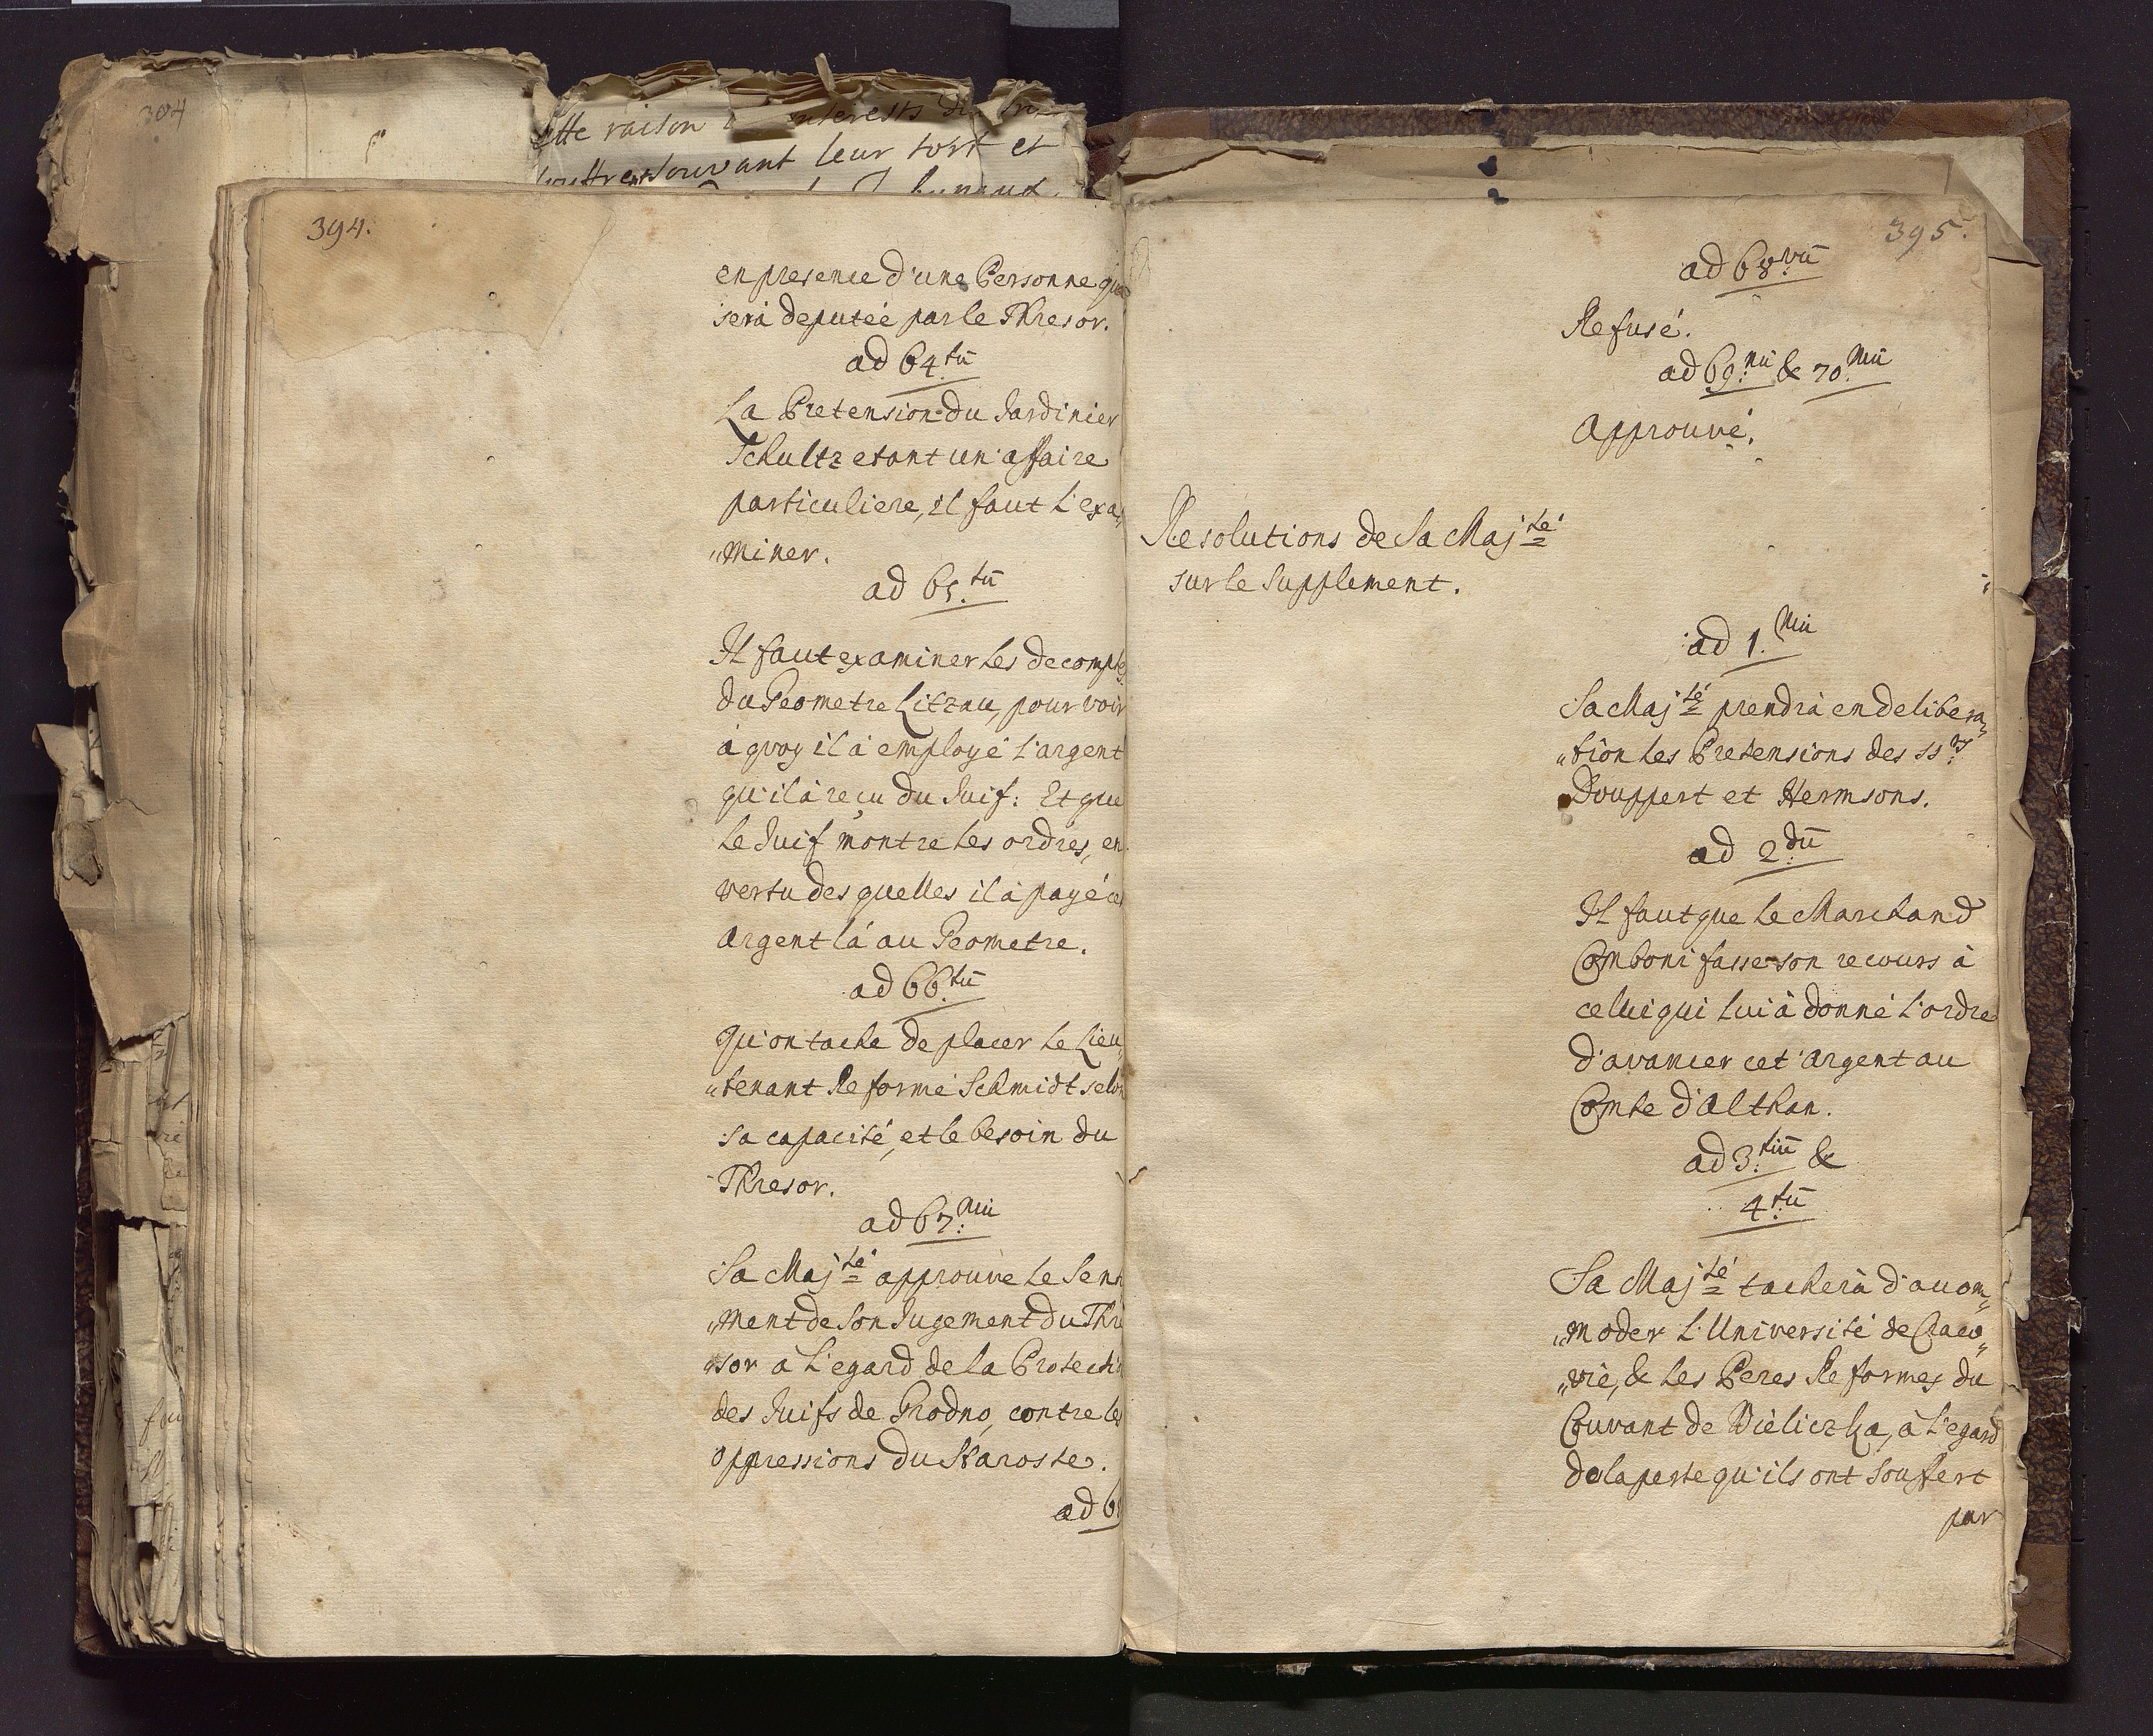 304
cette raison
interests du
leur tort et
394.
en presence d'une Personne qui
serà deputée par le Thresor.
ad 64.tū
La Pretension du Jardinier
Schultz etant un' affaire
particuliere, il faut l'exa„
„miner.
ad 65.tū
Il faut examiner les decomptes
du Geometre Litzau, pour voir
à quoy il à employé l'argent
qu'il à reçu du Juif: Et que
le Juif montre les ordres, en
vertu des quelles il à payé cet
argent là au Geometre.
ad 66.tū
Qu'on tache de placer le Lieu„
„tenant Reformé Schmidt selon
sa capacité, et le besoin du
Thresor.
ad 67.mū
Sa Maj.té approuve le Senti
„ment de son Jugement du Thre
„sor à l'egard de la Protection
des Juifs de Grodno, contre les
oppressions du Staroste.
ad 68
395.
ad 68.vū
Refusé.
ad 69.nū & 70.mū
Approuvé.
Resolutions de Sa Maj.té
sur le Supplement.
ad 1.mū
Sa Maj.té prendrà en delibera„
„tion les Pretensions des SS.rs
Douppert et Hermsons.
ad 2.dū
Il faut que le Marchand
Comboni fasse son recours à
celui qui lui à donné l'ordre
d'avancer cet argent au
Comte d'Althan.
ad 3.tiū &
4.tū
Sa Maj.té tacherà d'accom„
„moder l'Université de Craco„
„vie, & les Peres Reformez du
Couvant de Wieliczka, à l'egard
de la perte qu'ils ont souffert
par